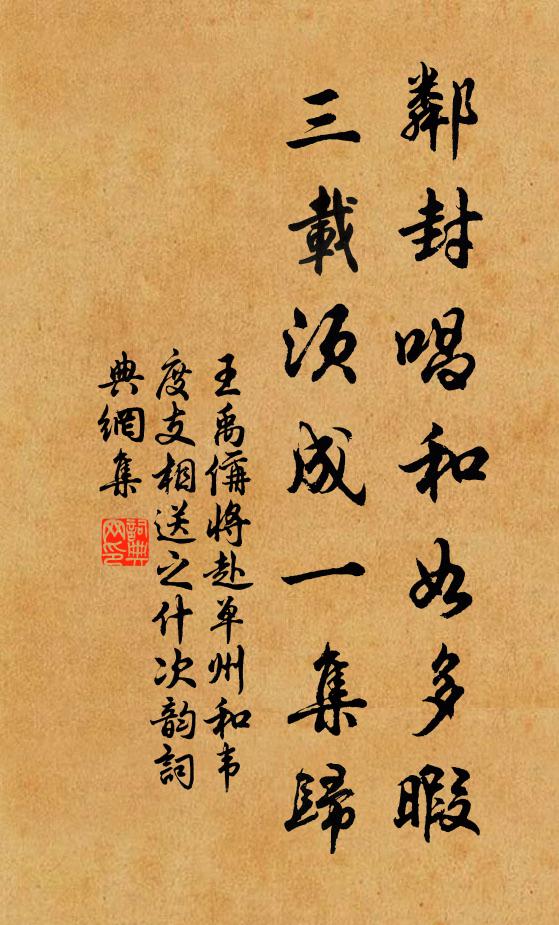 鄰封唱和如多暇
三載須成一集歸
王禹偁將赴單州和韦
度支相送之什次韵詞
典網集
詞典网印